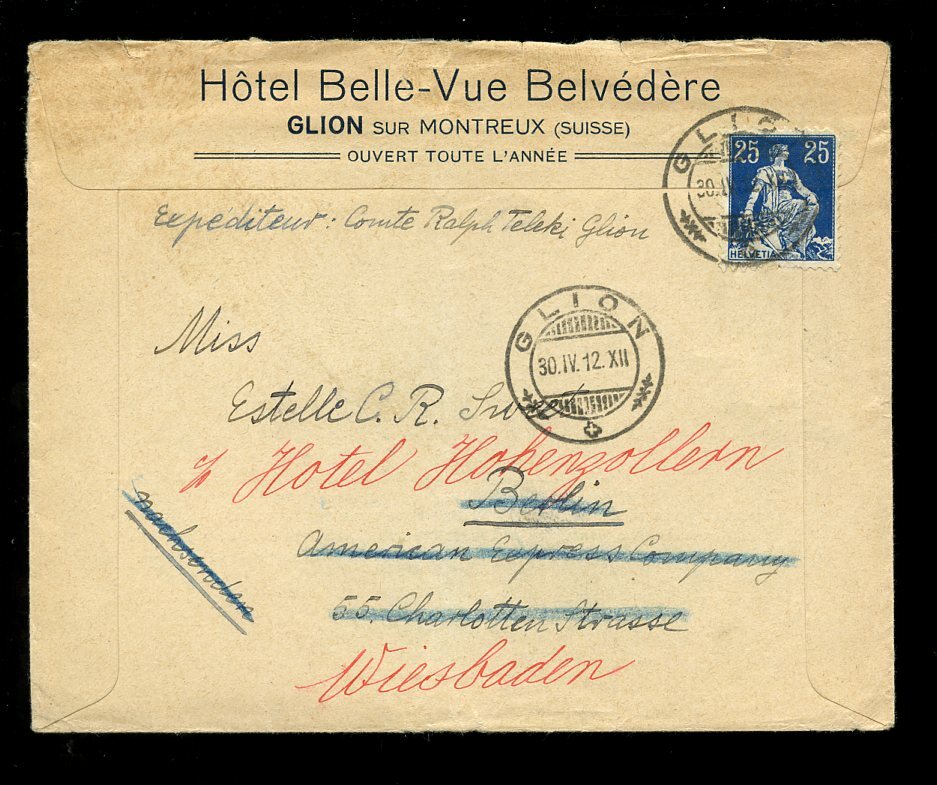 Hôtel Belle-Vue Belvédère
GLION SUR MONTREUX (SUISSE)
OUVERT TOUTE L'ANNÉE
GLION
30.IV.
25 25
HELVETIA
Expéditeur: Comte Ralph Teleki Glion
GLION
30.IV.12.XII
Miss
Estelle C. R.
% Hotel Hohenzollern
Berlin
American Express Company
55. Charlotten Strasse
nachsenden
Wiesbaden